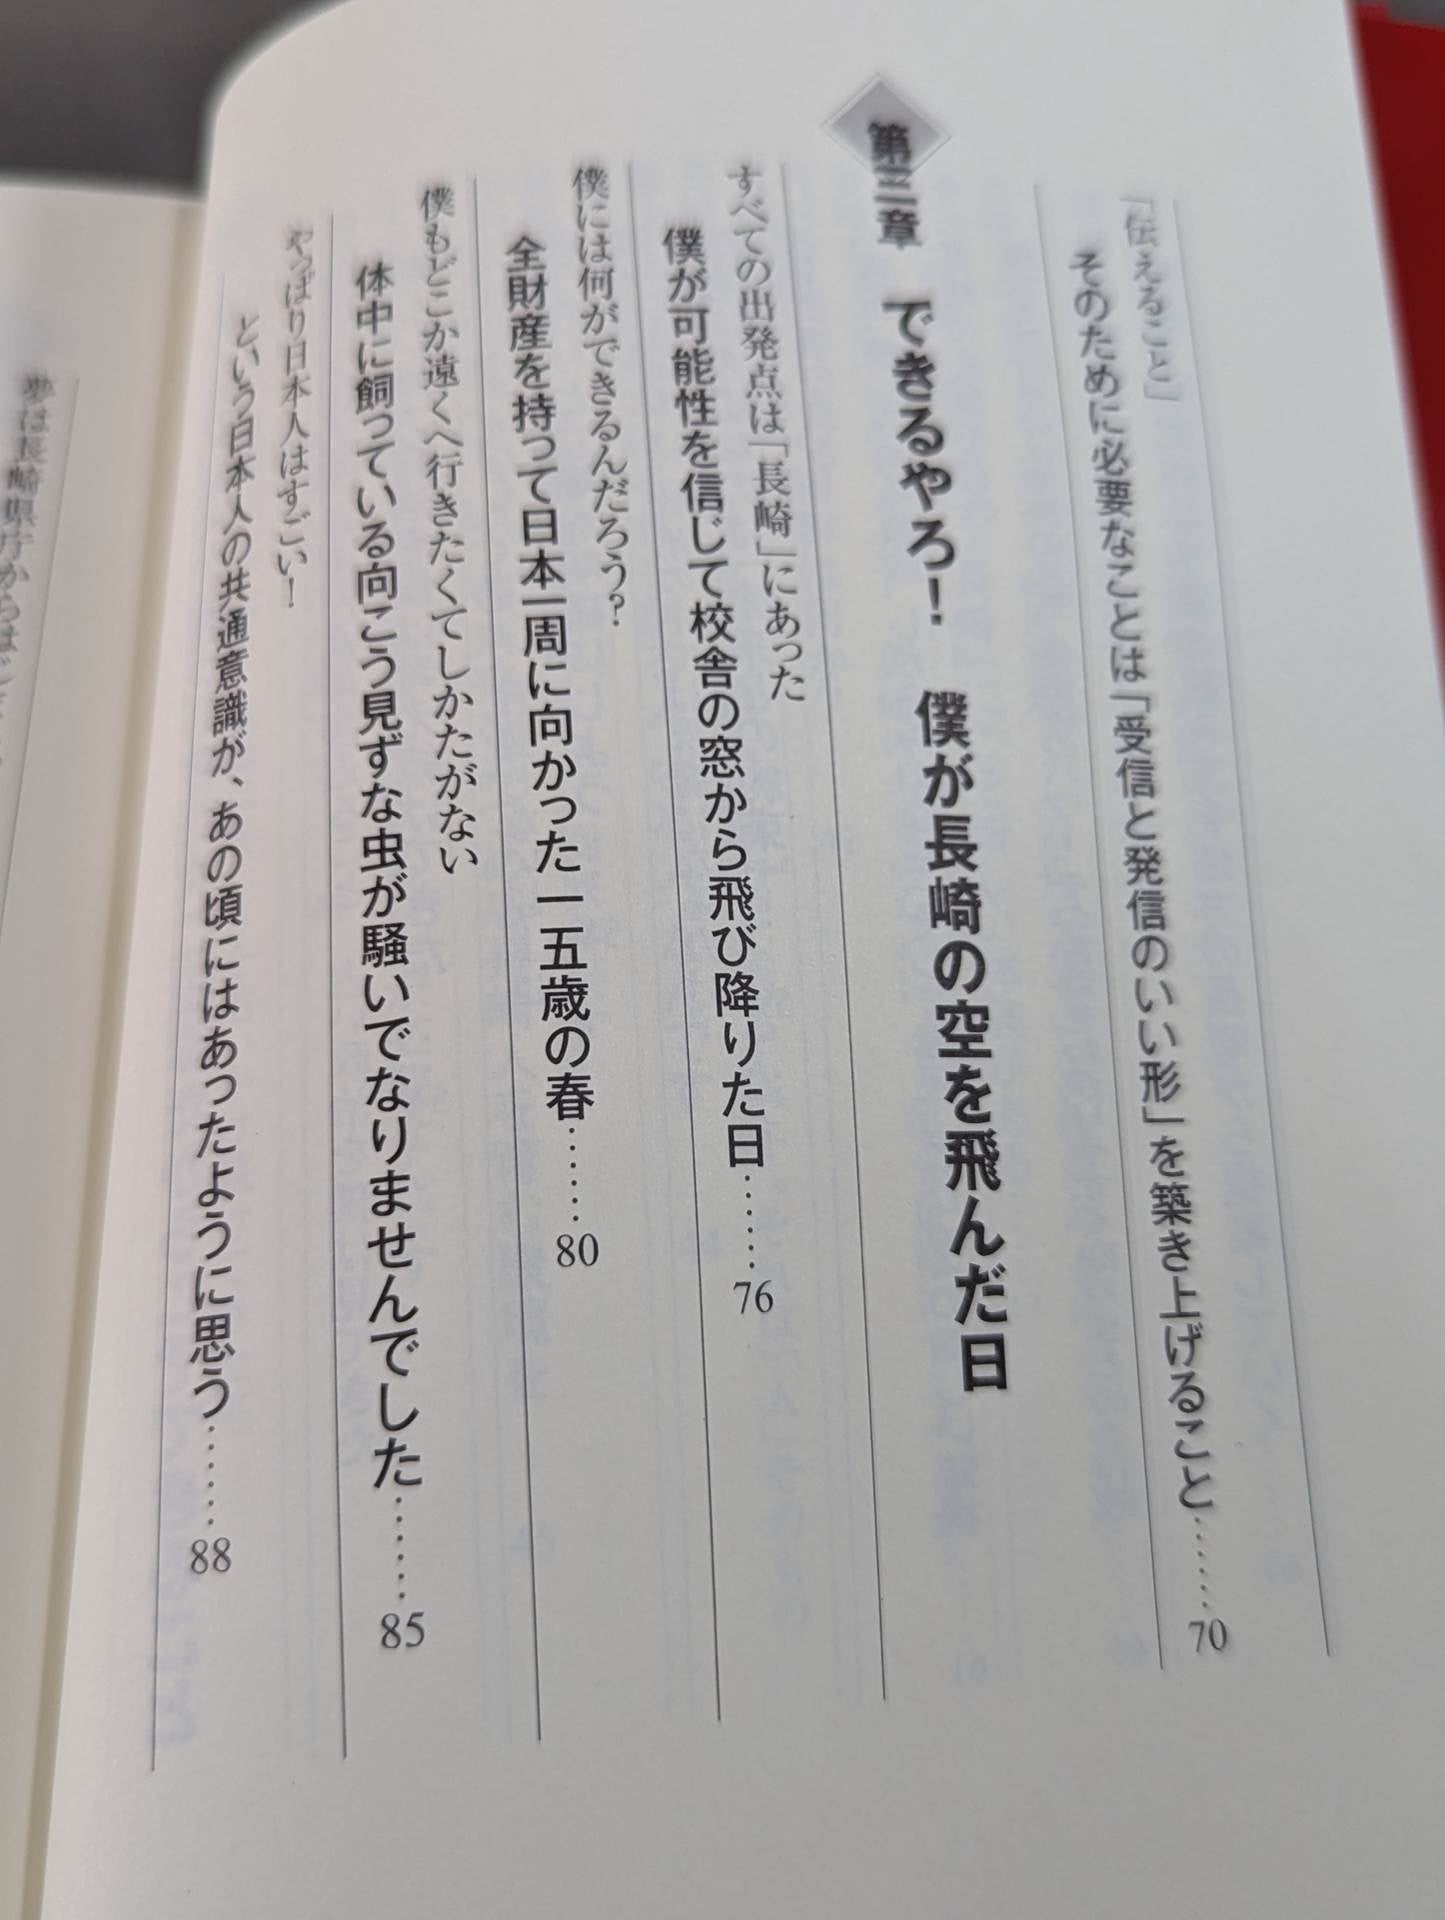 「伝えること」
そのために必要なことは「受信と発信のいい形」を築き上げること……70
第三章　できるやろ！　僕が長崎の空を飛んだ日
すべての出発点は「長崎」にあった
僕が可能性を信じて校舎の窓から飛び降りた日……76
僕には何ができるんだろう？
全財産を持って日本一周に向かった一五歳の春……80
僕もどこか遠くへ行きたくてしかたがない
体中に飼っている向こう見ずな虫が騒いでなりませんでした……85
やっぱり日本人はすごい！
という日本人の共通意識が、あの頃にはあったように思う……88
夢は長崎県庁から